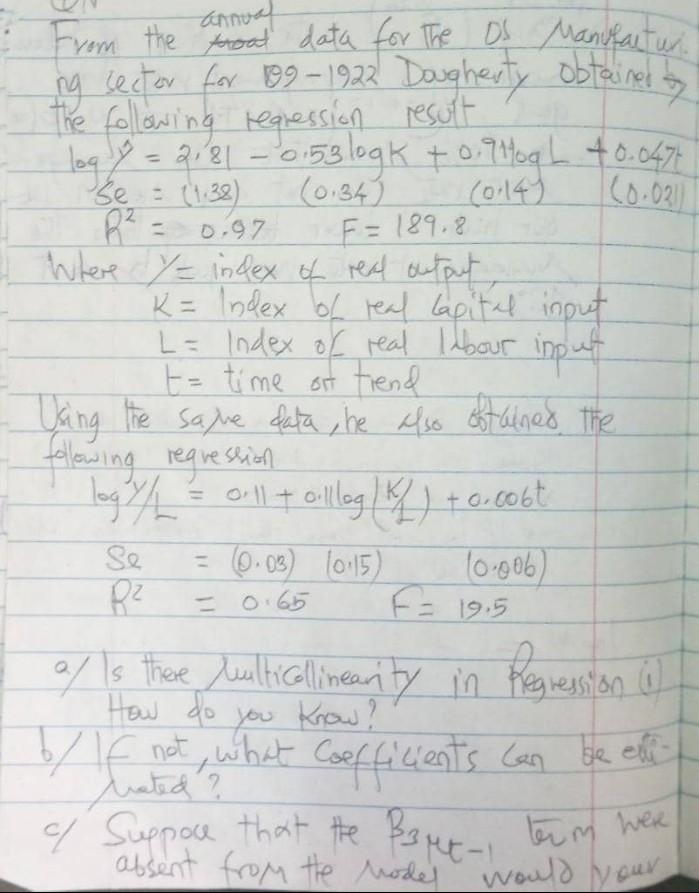 annual
From the data for the US Manufacturi
ng sector for 1899-1922 Dougherty obtained
the following regression result
log Y = 2.81 - 0.53 log K + 0.91 log L + 0.047t
Se = (1.38) (0.34) (0.14) (0.021)
R² = 0.97 F = 189.8
Where Y = index of real output,
K = Index of real Capital input
L = Index of real labour input
t = time or trend
Using the same data, he also obtained the
following regression
log Y/L = 0.11 + 0.11 log (K/L) + 0.006t
Se = (0.03) (0.15) (0.006)
R² = 0.65 F = 19.5
a/ Is there Multicollinearity in Regression (i)
How do you know?
b/ If not, what Coefficients can be esti-
mated?
c/ Suppose that the β₃μt-1 term were
absent from the Model would your